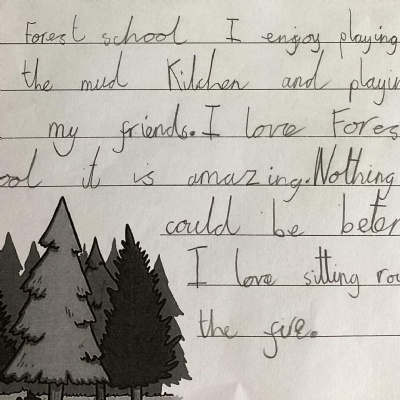 Forest school I enjoy playing
the mud Kitchen and playin
my friends. I love Fores
ool it is amazing. Nothing
could be beter
I love sitting rou
the fire.